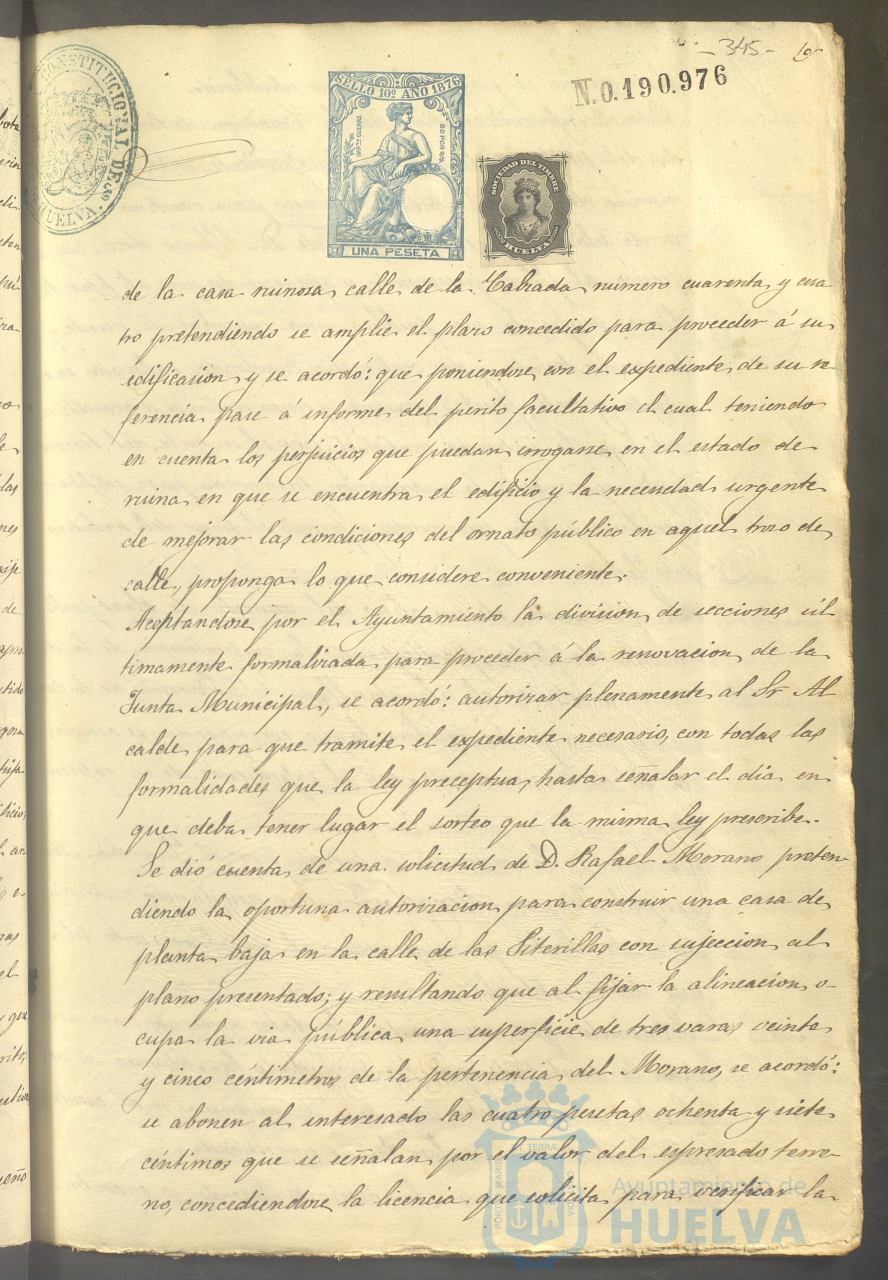 - 345 -
19
N.0.190.976
CONSTITUCIONAL DE
HUELVA.
SELLO 10º AÑO 1876
IMPTO GUERRA
50 POR %
UNA PESETA
SOCIEDAD DEL TIMBRE
HUELVA
de la casa ruinosa calle de la Calzada número cuarenta y cua
tro pretendiendo se amplíe el plazo concedido para proceder á su
edificacion y se acordó: que poniendose con el expediente de su re
ferencia pase á informe del perito facultativo el cual teniendo
en cuenta los perjuicios que puedan irrogarse en el estado de
ruina en que se encuentra el edificio y la necesidad urgente
de mejorar las condiciones del ornato público en aquel trozo de
calle, proponga lo que considere conveniente.
Aceptandose por el Ayuntamiento la division de secciones úl
timamente formalizada para proceder á la renovacion de la
Junta Municipal, se acordó: autorizar plenamente al Sr Al
calde para que tramite el expediente necesario, con todas las
formalidades que la ley preceptua, hasta señalar el dia en
que deba tener lugar el sorteo que la misma ley prescribe.
Se dió cuenta de una solicitud de D. Rafael Morano preten
diendo la oportuna autorizacion para construir una casa de
planta baja en la calle de las Siterillas con sujeccion al
plano presentado; y resultando que al fijar la alineacion o-
cupa la via pública una superficie de tres varas veinte
y cinco céntimetros de la pertenencia del Morano, se acordó:
se abonen al interesado las cuatro pesetas ochenta y siete
céntimos que se señalan por el valor del espresado terre-
no, concediendose la licencia que solicita para verificar la
Ayuntamiento de
HUELVA